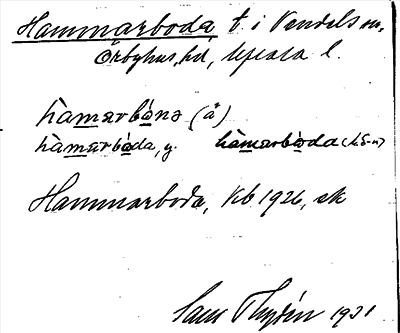 Hammarboda t. i Vendels sn,
Örbyhus, hd, Uppsala l.
hàmarbòna (å)
hàmarbòda, y. hàmarbòda
Hammarboda, kb 1926, ek
1931